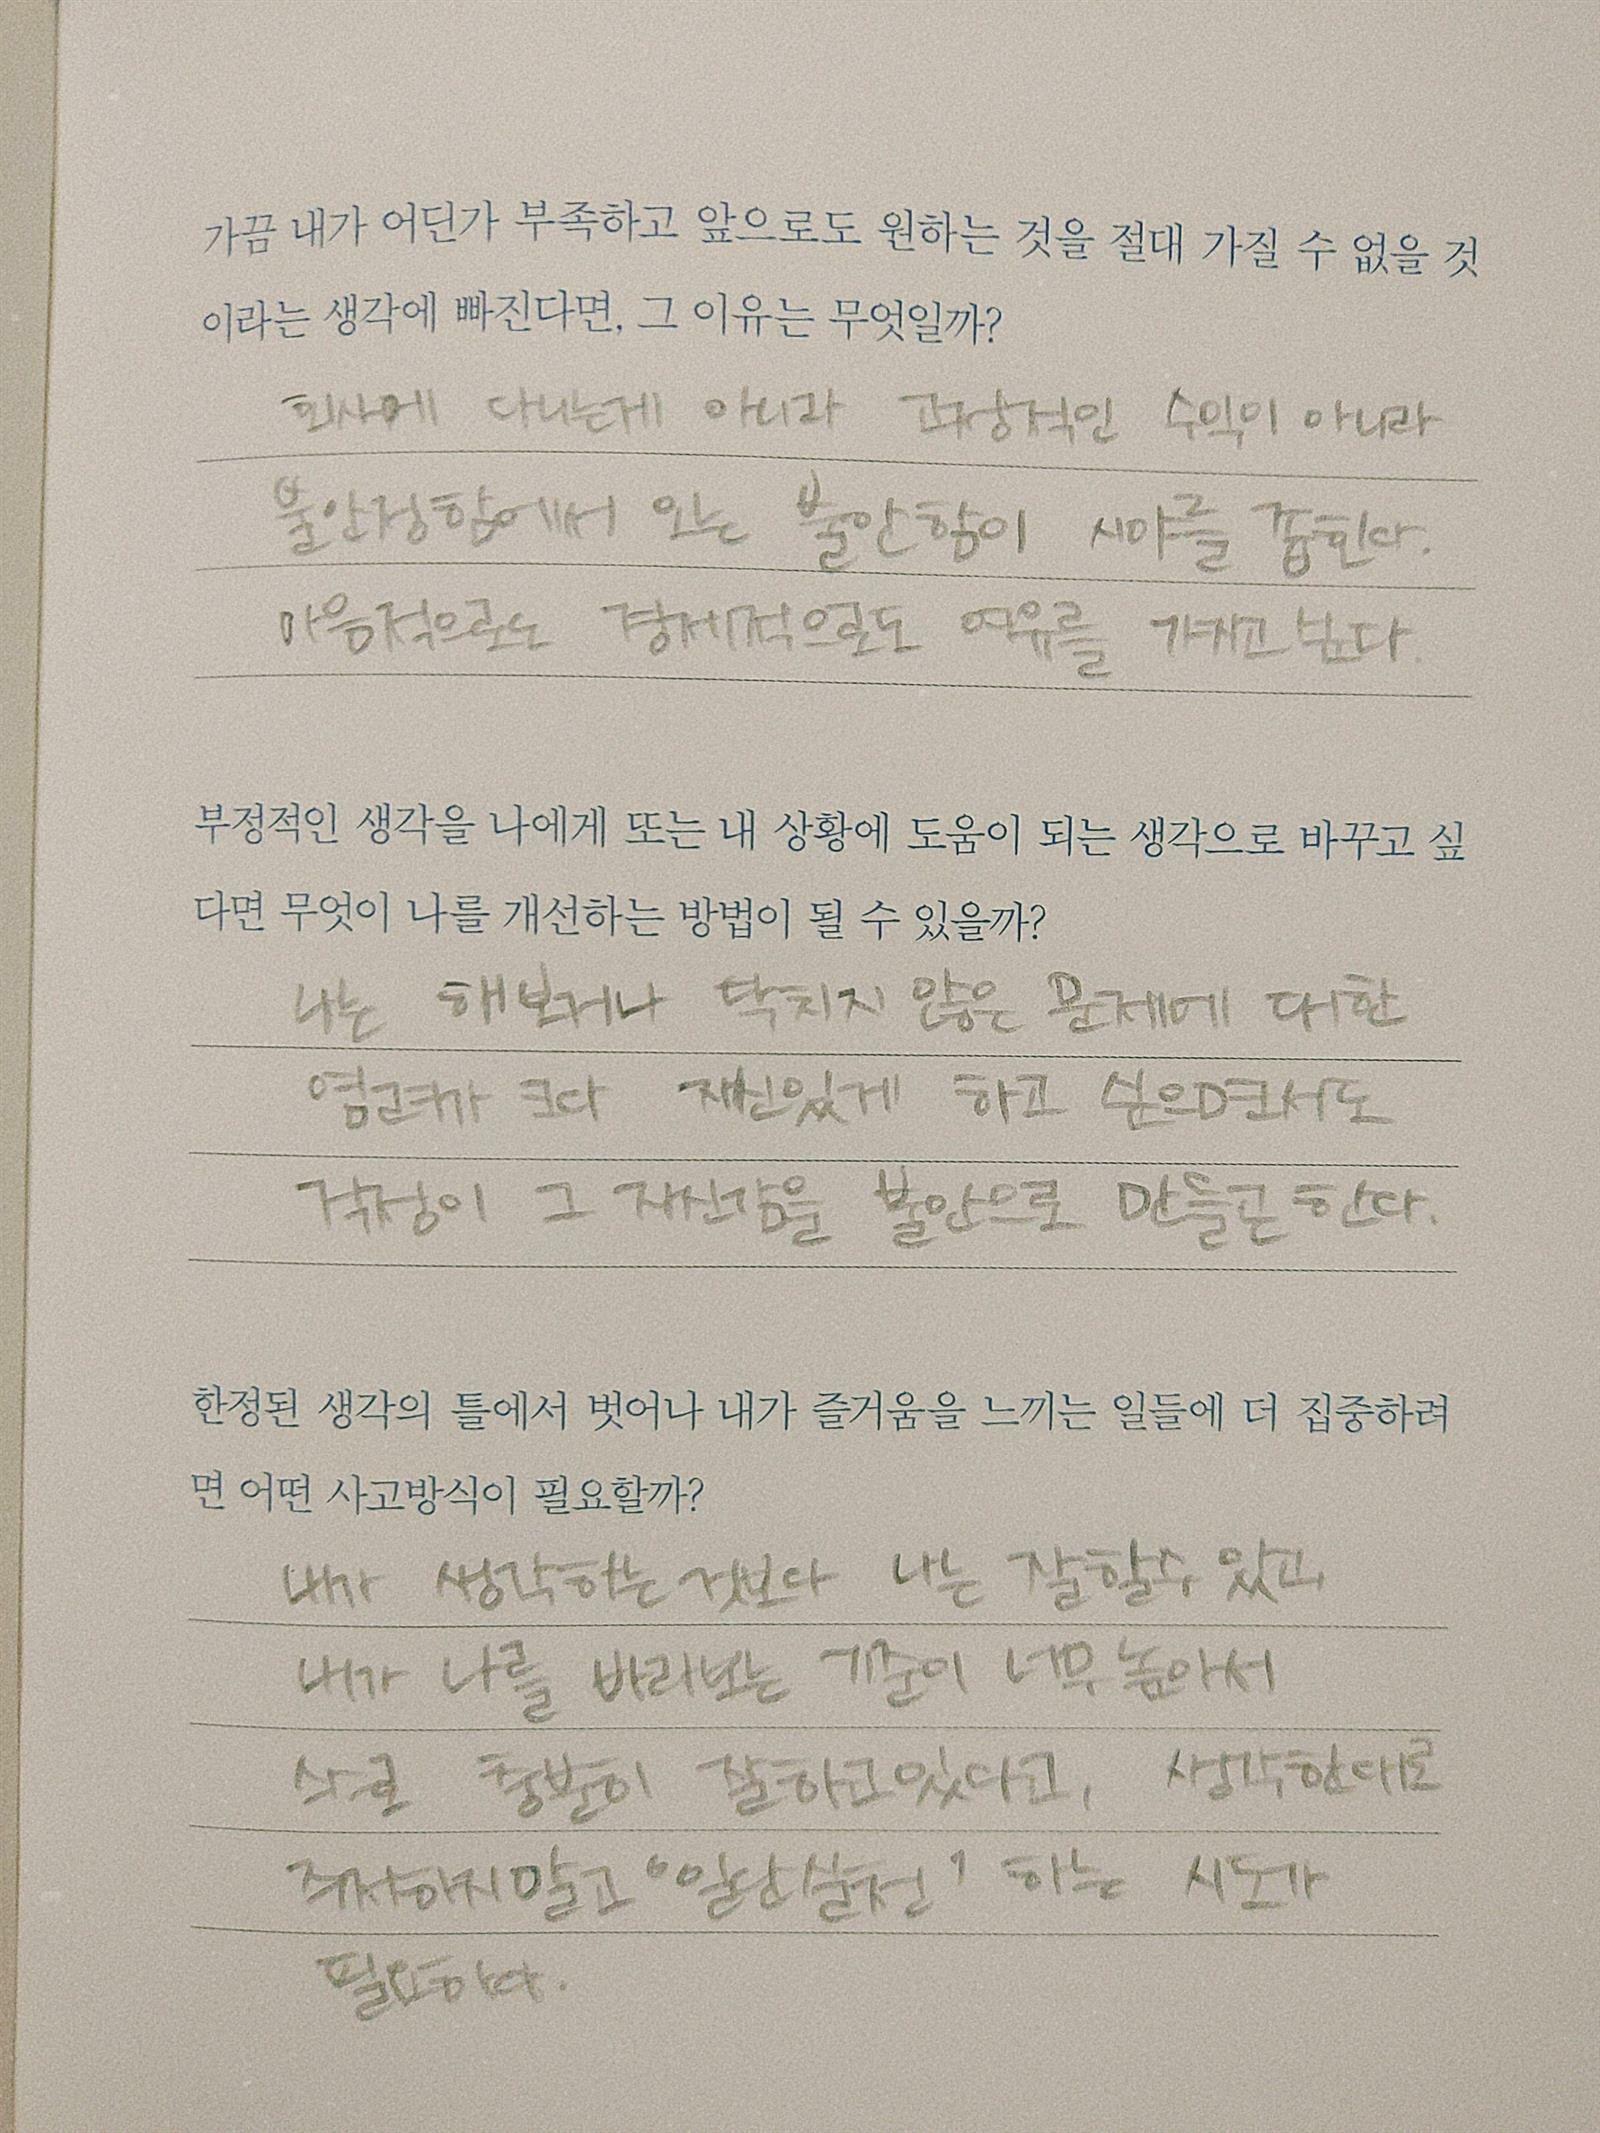 가끔 내가 어딘가 부족하고 앞으로도 원하는 것을 절대 가질 수 없을 것
이라는 생각에 빠진다면, 그 이유는 무엇일까?
회사에 다니는게 아니라 고정적인 수익이 아니라
불안정함에서 오는 불안함이 시야를 좁힌다.
마음적으로도 경제적으로도 여유를 가지고 싶다.
부정적인 생각을 나에게 또는 내 상황에 도움이 되는 생각으로 바꾸고 싶
다면 무엇이 나를 개선하는 방법이 될 수 있을까?
나는 해보거나 닥치지 않은 문제에 대한
염려가 크다 자신있게 하고 싶으면서도
걱정이 그 자신감을 불안으로 만들곤 한다.
한정된 생각의 틀에서 벗어나 내가 즐거움을 느끼는 일들에 더 집중하려
면 어떤 사고방식이 필요할까?
내가 생각하는 것보다 나는 잘할수 있고
내가 나를 바라보는 기준이 너무 높아서
충분히 잘하고있다고, 생각한대로
주저하지말고 '일단실천' 하는 시도가
필요하다.